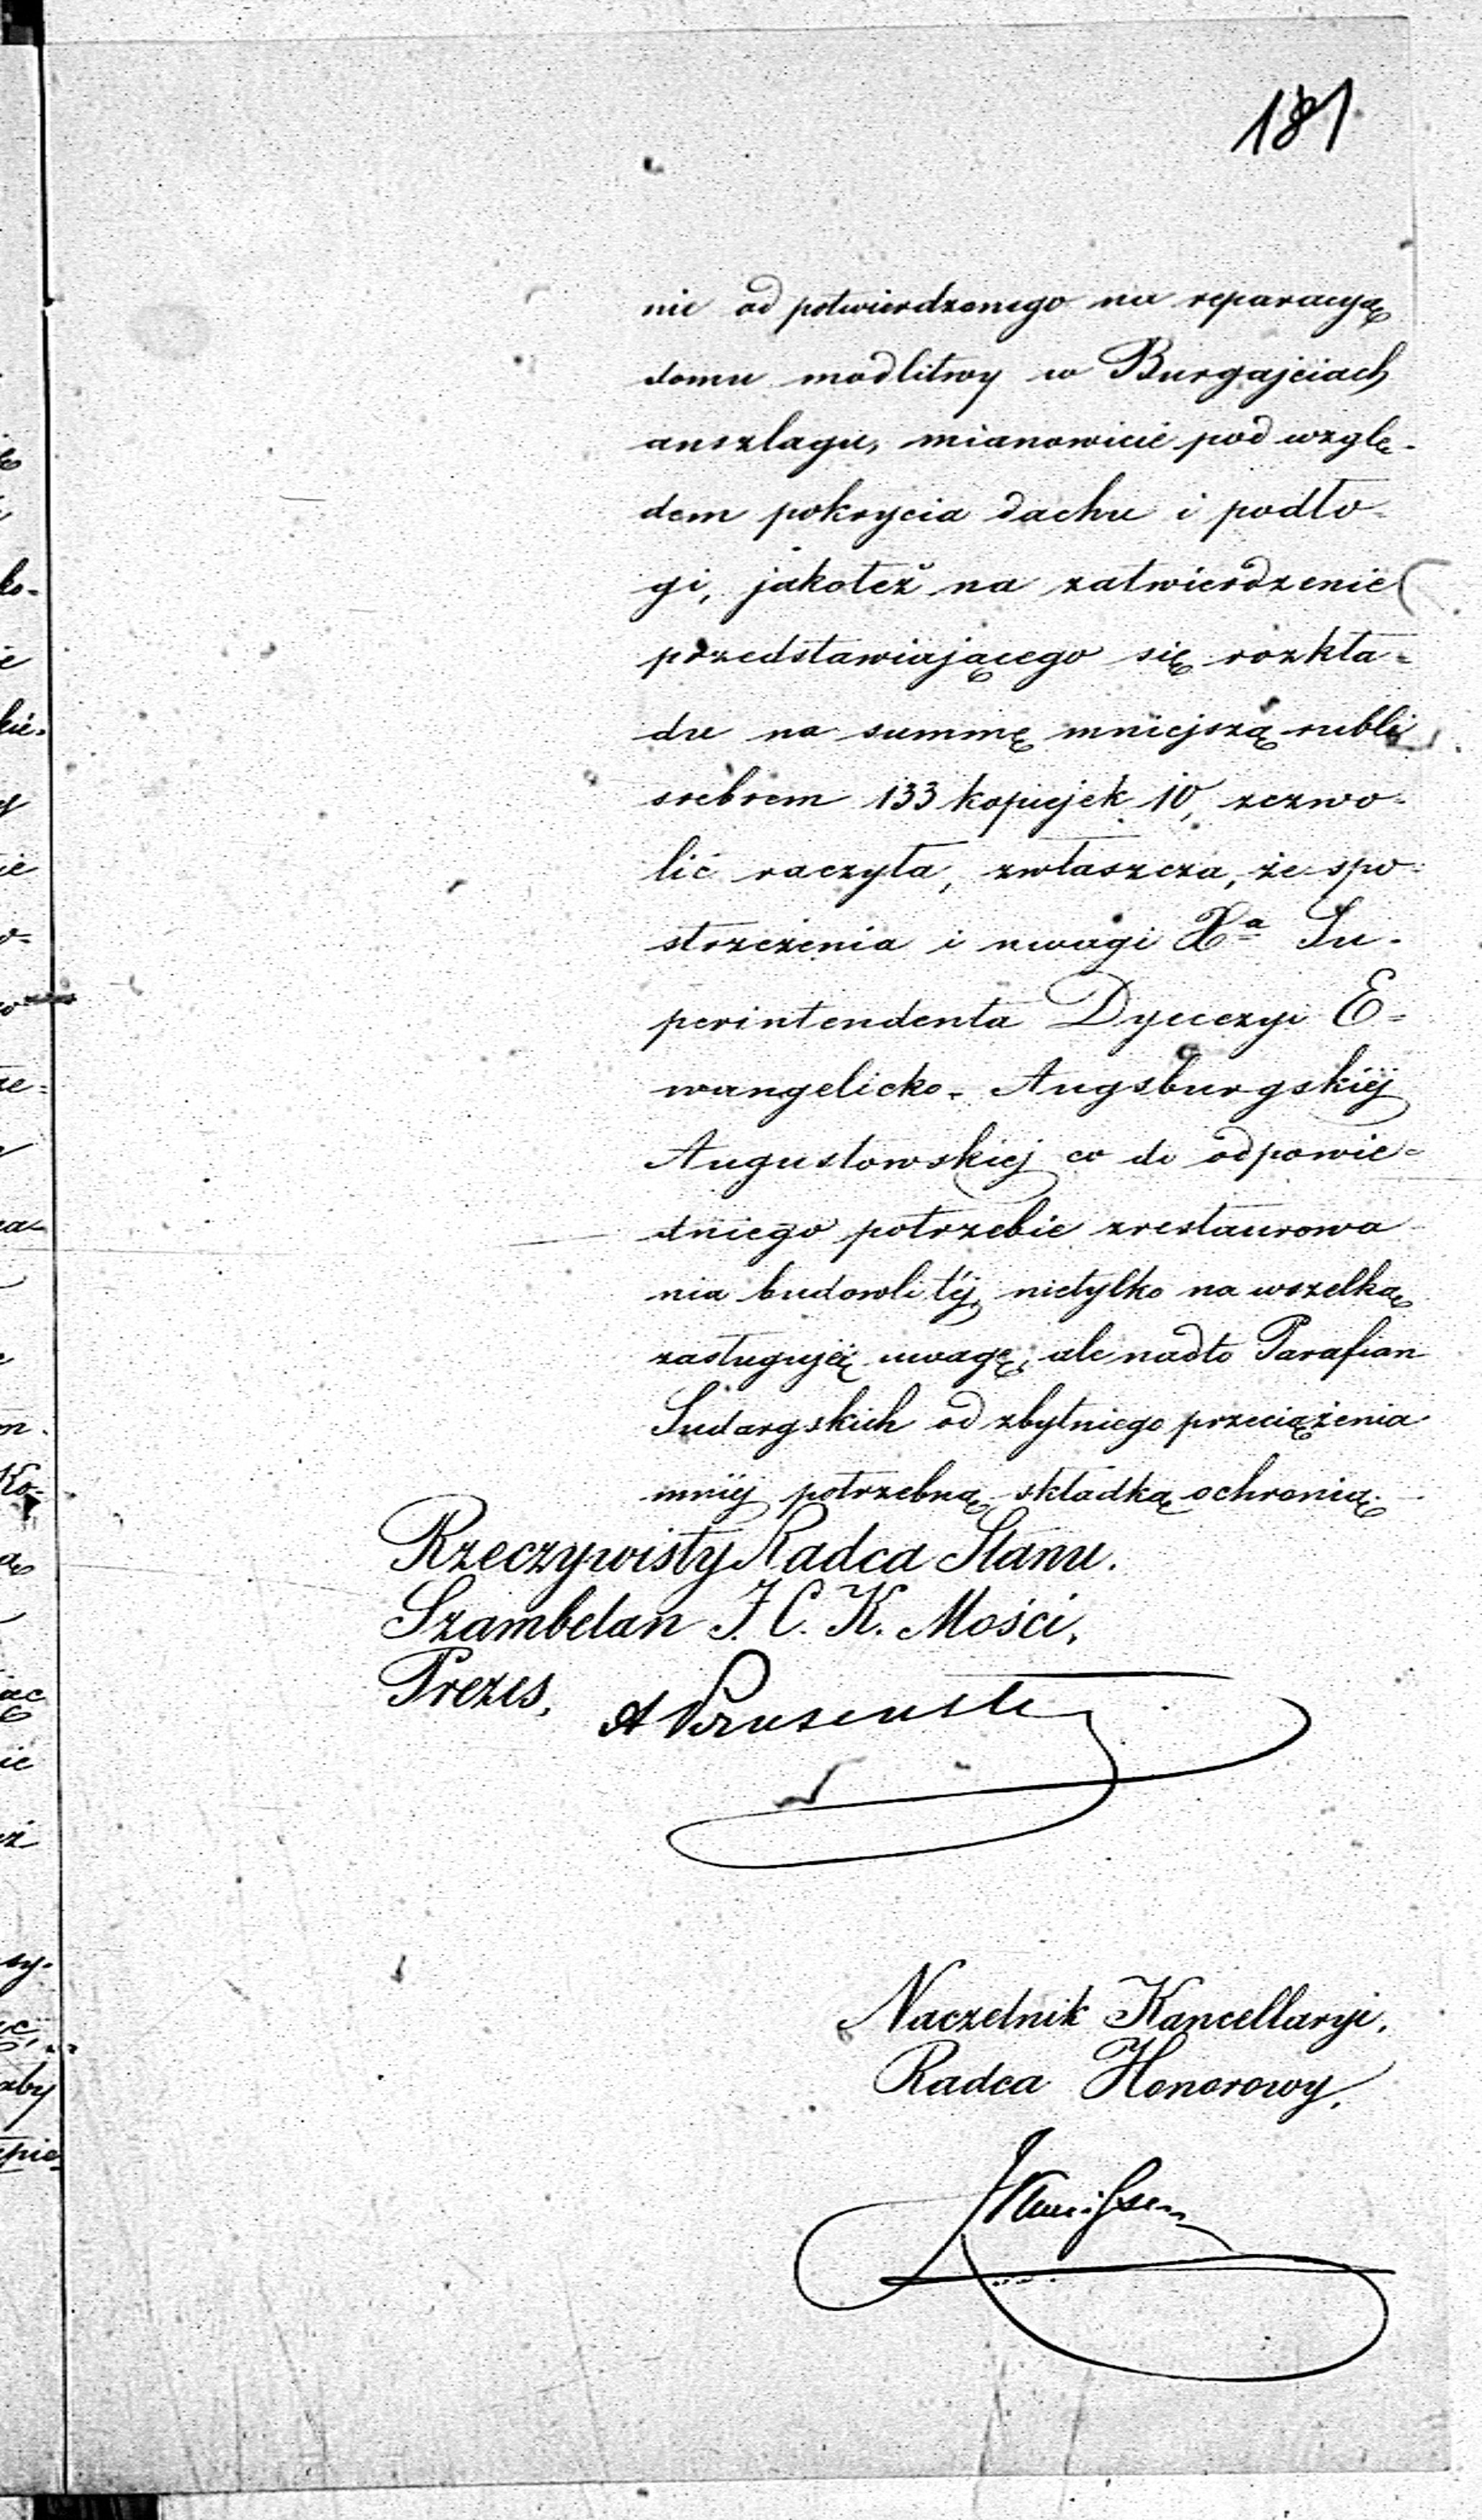 181
nie od potwierdzonego na reparacyą
domu modlitwy w Burgajciach
anszlagu, mianowicie pod wzglę-
dem pokrycia dachu i podło-
gi, jakoteż na zatwierdzenie
przedstawiającego się rozkła=
du na summę mniejszą rubli
srebrem 133 kopiejek 10, zezwo-
lić raczyła, zwłaszcza, że spo-
strzeżenia i uwagi Xa Su-
perintendenta Dyecezyi E=
wangelicko-Augsburgskiéj
Augustowskiej co do odpowie-
dniego potrzebie zrestaurowa
nia budowli téj, nietylko na wszelką
zasługują uwagę, ale nadto Parafian
Sudargskich od zbytniego przeciążenia
mniéj potrzebną składką ochronią.
Rzeczywisty Radca Stanu.
Szambelan J. C. K. Mości,
Prezes,
Naczelnik Kancellaryi,
Radca Honorowy,